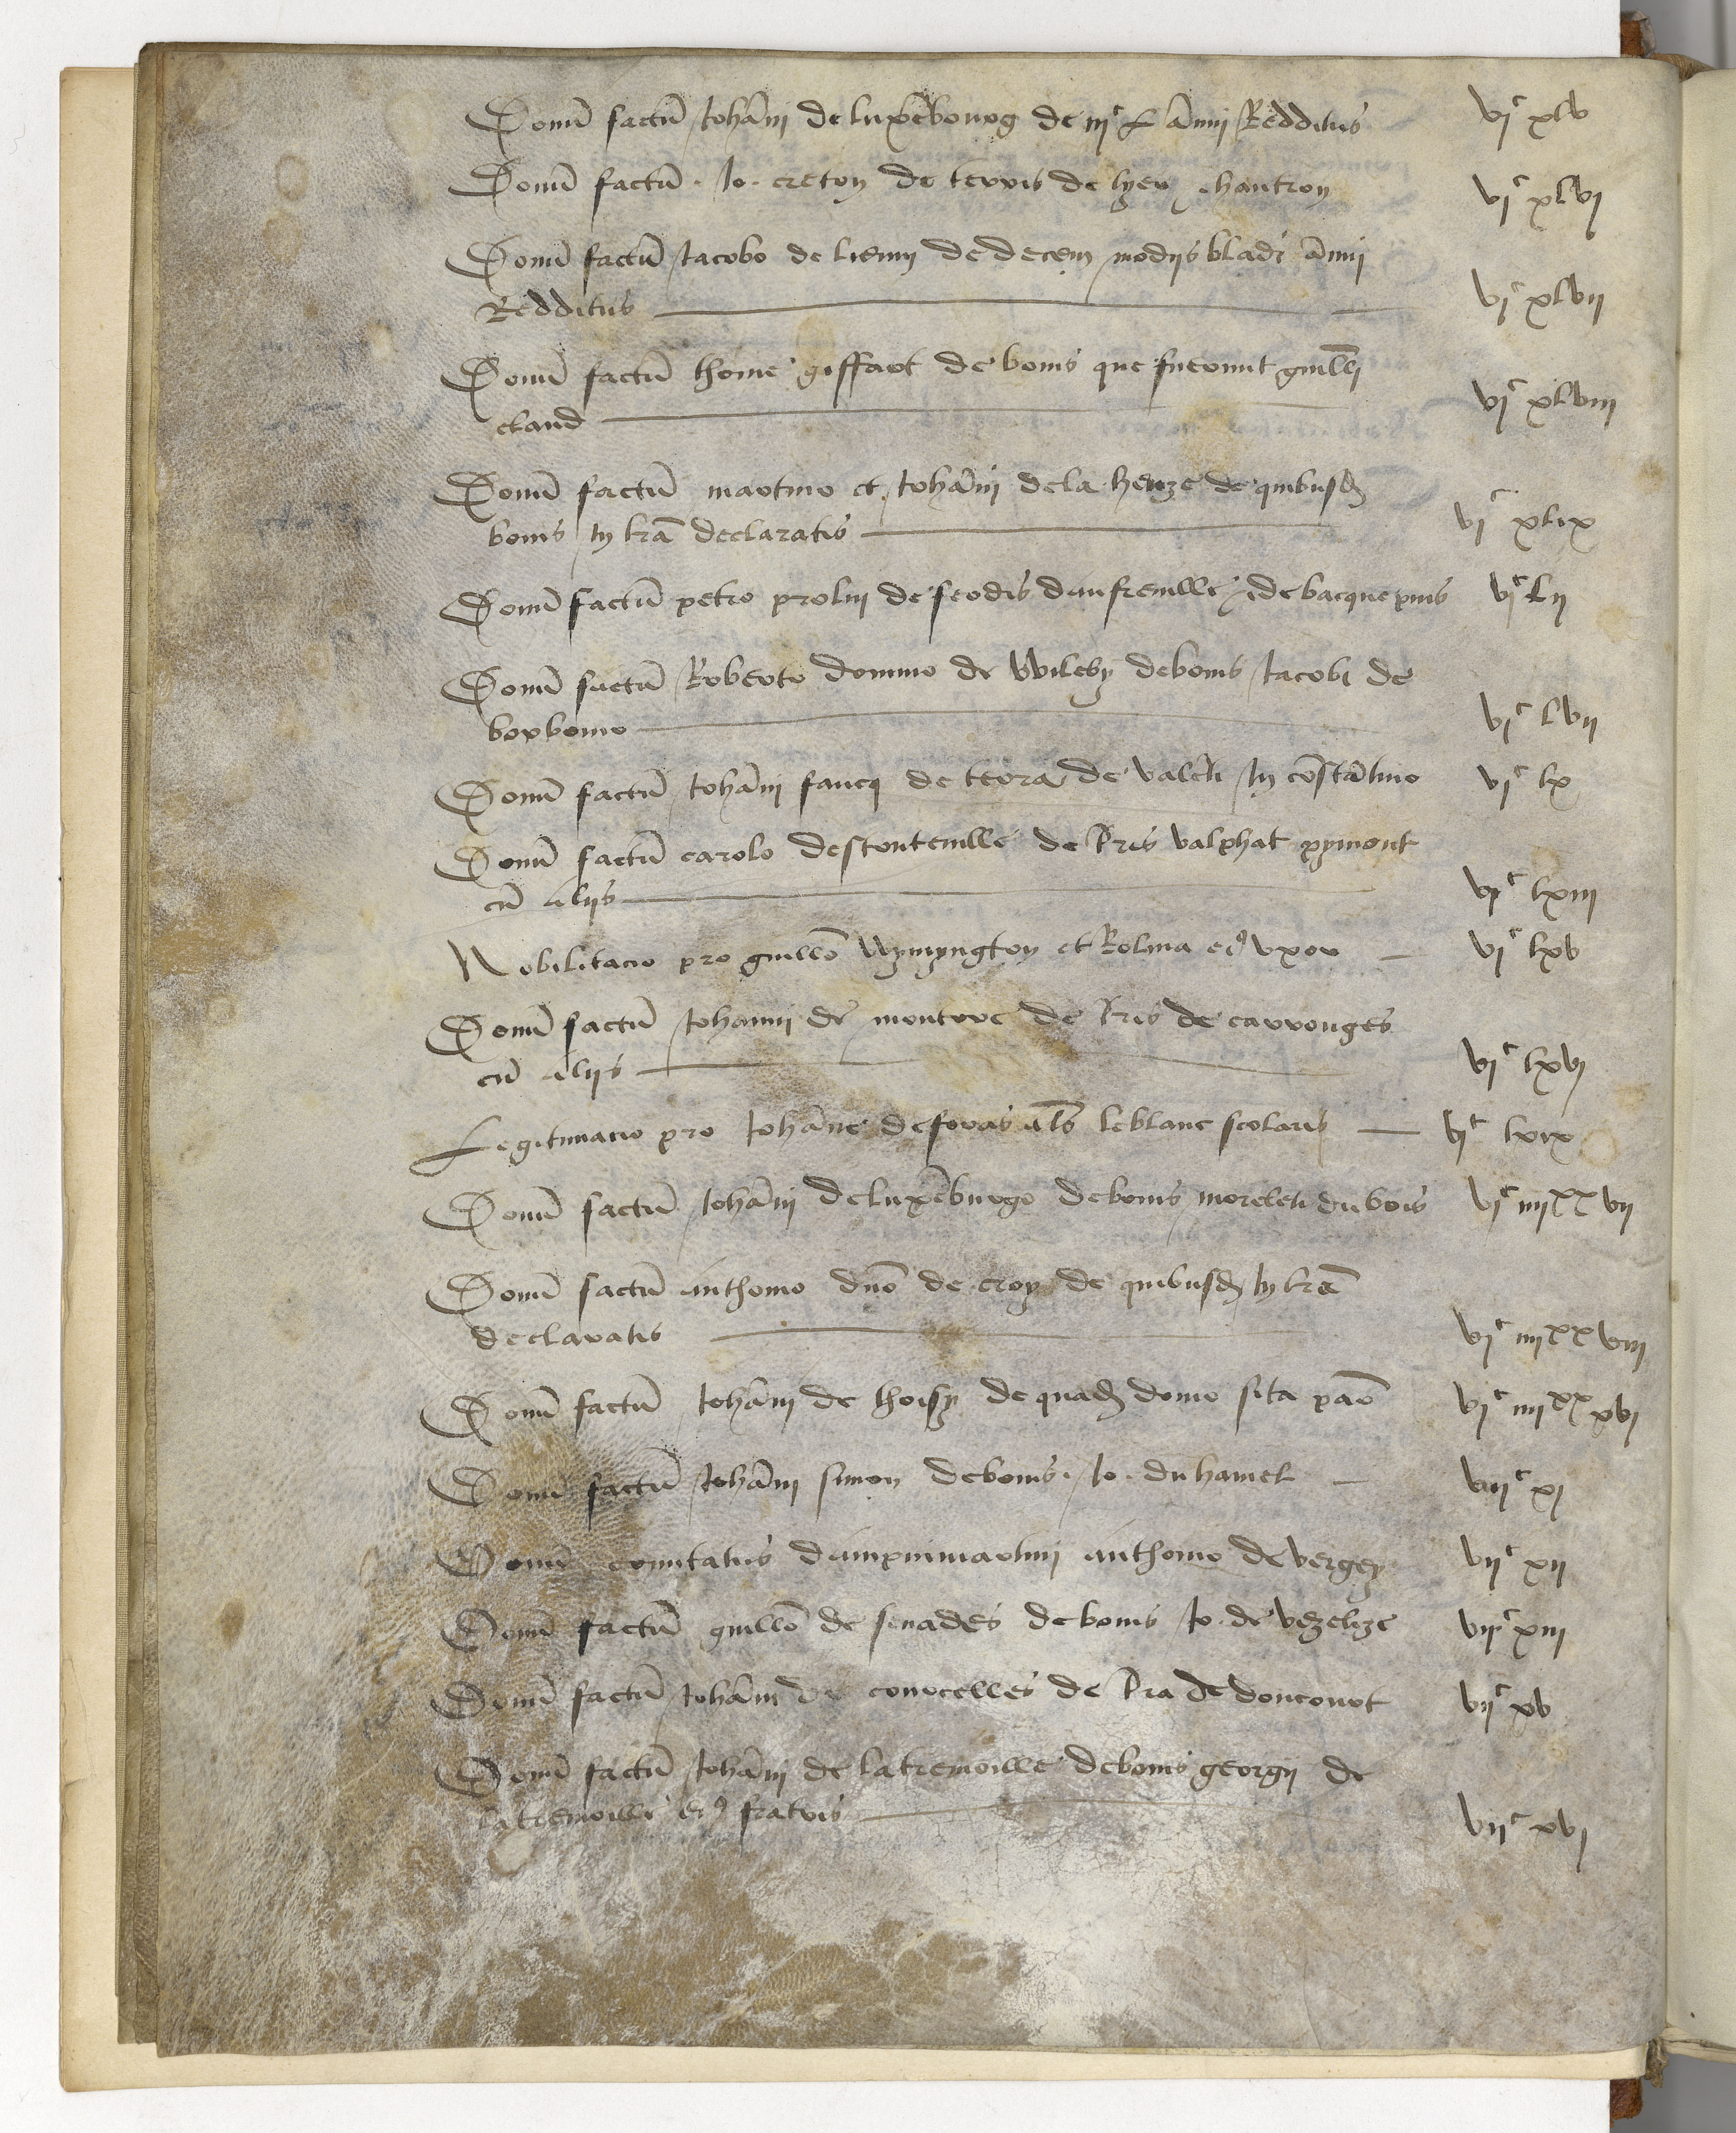 Donū factū Johāni de luxēbourg de iijc L āmii Redditus vjc xlv
Donū factū . Jo . creton de terris de lyeu chantron vjc xlvj
Donū factū Jacobo de lieuin de decem modiis bladi ānui
Redditus vjc xlvij
Donū factū thome giffart de bonis que fuerunt guillī
claud vjc xlviij
Donū factū martino et Johāni de la heuze de quibusd
bonis in lrā declaratis vjc xlix
Donū factū petro prolin de feodis danfreuille et de bacquepuis vjc Lij
Donū factū Roberto domino de Wileby de bonis Jacobi de
borbonio vjc lvij
Donū factū Johāni faucq de terra de valen in cōstātino vjc lx
Donū factū carolo destouteuille de tris valphat pymont
cū aliis vjc lxiij
Nobilitacio pro guillō Wymyngton et Rolina ei9 vxor vjc lxv
Donū factū Johanni de montrre de tris de carrouges
cū aliis vjc lxvj
Legitimacio pro Johāne de foras als leblanc scolaris vjc lxix
Donū factū Johāni de luxēburgo de bonis moreleti du bois vjc iiijxx vij
Donū factū Anthonio dno de croy de quibusd in lrā
declaratis vjc iiijxx viij
Donū factū Johāni de thoisy de quad domo sita par vjc iiijxx xvj
Donū factū Johāni simon de bonis . Jo . du hamel vijc xj
Donū comitatus dampnimartini anthonio de vergey vijc xij
Donū factū guillō de senades de bonis Jo . de vezelize vijc xiij
Donū factū Johāni de courcelles de tra de doucourt vijc xv
Donū factū Johāni de latremoille de bonis georgii de
latremoille ei9 fratris vijc xvj